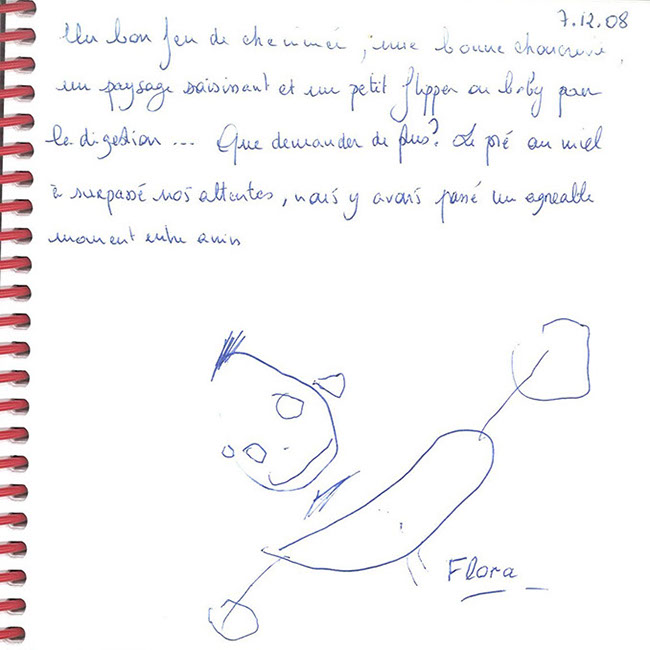 7.12.08
Un bon feu de cheminée, une bonne choucroute,
un paysage saisissant et un petit flipper ou baby pour
la digestion ... Que demander de plus? Le pré au miel
à surpassé nos attentes, nous y avons passé un agreable
moment entre amis
Flora